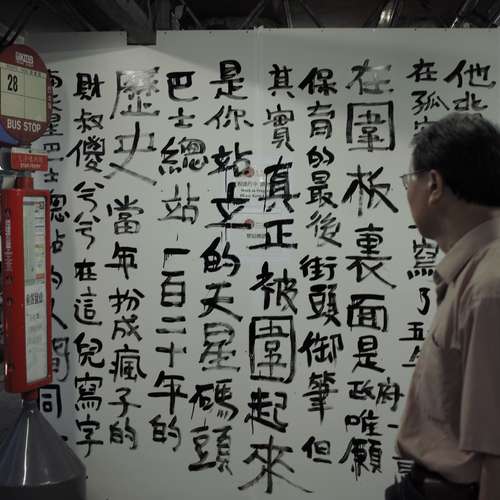 他
在孤
寫了五年
在圍板裏面是政府唯一願
保育的最後街頭御筆但
其實真正被圍起來
是你站立的天星碼頭
巴士總站一百二十年的
歷史當年扮成瘋子的
財叔傻兮兮在這兒寫字
星巴士總站的人間同
28
BUS STOP